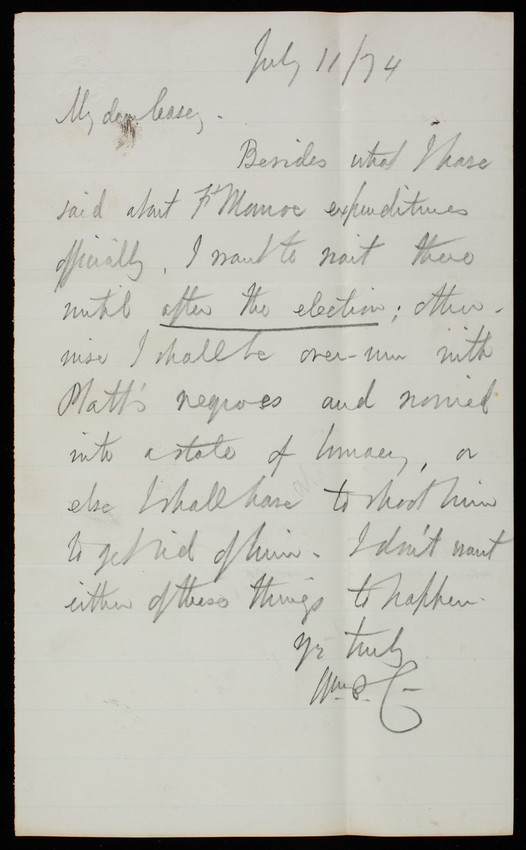 July 11/74
My dear Casey.
Besides what I have
said about Ft Monroe expenditures
officially, I want to wait there
until after the election; other-
wise I shall be over-run with
Platt's negroes and worried
into a state of lunacy, or
else I shall have to shoot him
to get rid of him. I don't want
either of these things to happen.
Yr truly
Wm P. C—